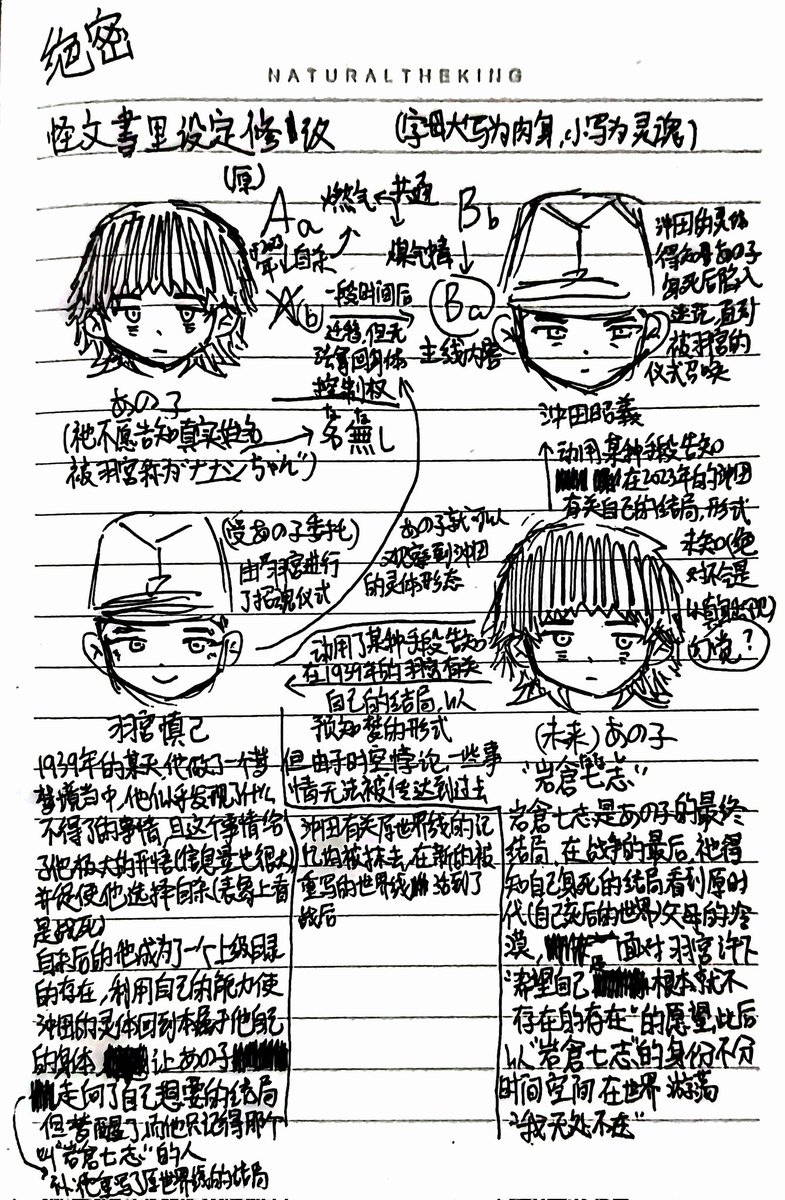 绝密
NATURALTHEKING
怪文書里设定修改
(字母大写为肉身,小写为灵魂)
(原)
Aa
燃气
共通
Bb
煤气
自杀
Ab
一段时间后
Ba
主线内容
法拿回身体
控制权
沖田的灵体
得知母あの子
身死后陷入
迷茫,直到
被羽宫的
仪式召唤
あの子
(祂不愿告知真实姓名
被羽宫称为"ナナシちゃん")
名無し
沖田昭義
动用某种手段告知
在2023年的沖田
有关自己的结局,形式
未知(绝
对不会是
幻觉?
(受あの子委托)
由羽宫进行
了招魂仪式
あの子就可以
观察到沖田
的灵体形态
动用了某种手段告知
在1939年的羽宫有关
自己的结局,以
预知梦的形式
羽宫慎己
(未来)あの子
"岩倉七志"
1939年的某天,他做了一个梦
梦境当中,他似乎发现了什么
不得了的事情,且这个事情给
了他极大的刑情(信息量也很大)
并促使他选择自杀(表面上看
是战死)
自杀后的他成为了一个上级目录
的存在,利用自己的能力使
沖田的灵体回到本属于他自己
的身体,让あの子
走向了自己想要的结局
但梦醒了,而他只记得那个
叫"岩倉七志"的人
补:祂重写了原世界线的结局
但由于时空悖论,一些事
情无法被传达到过去
沖田有关原世界线的记
忆均被抹去,在新的被
重写的世界线活到了
战后
岩倉七志是あの子的最终
结局,在战争的最后,祂得
知自己身死的结局看到原时
代(自己死后的世界)父母的冷
漠,面对羽宫许下
"希望自己是根本就不
存在的存在"的愿望,此后
以"岩倉七志"的身份不分
时间空间在世界游荡
"我无处不在"